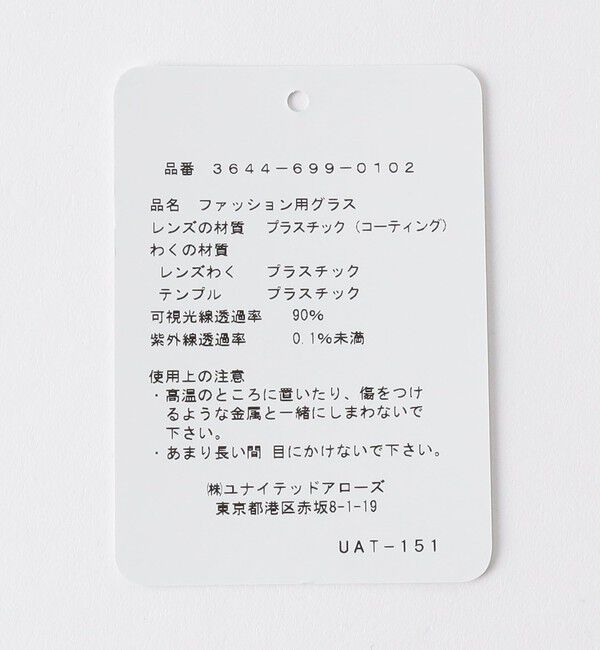 品番 3644-699-0102
品名 ファッション用グラス
レンズの材質 プラスチック(コーティング)
わくの材質
レンズわく プラスチック
テンプル プラスチック
可視光線透過率 90%
紫外線透過率 0.1%未満
使用上の注意
・高温のところに置いたり、傷をつけ
るような金属と一緒にしまわないで
下さい。
・あまり長い間 目にかけないで下さい。
㈱ユナイテッドアローズ
東京都港区赤坂8-1-19
UAT-151